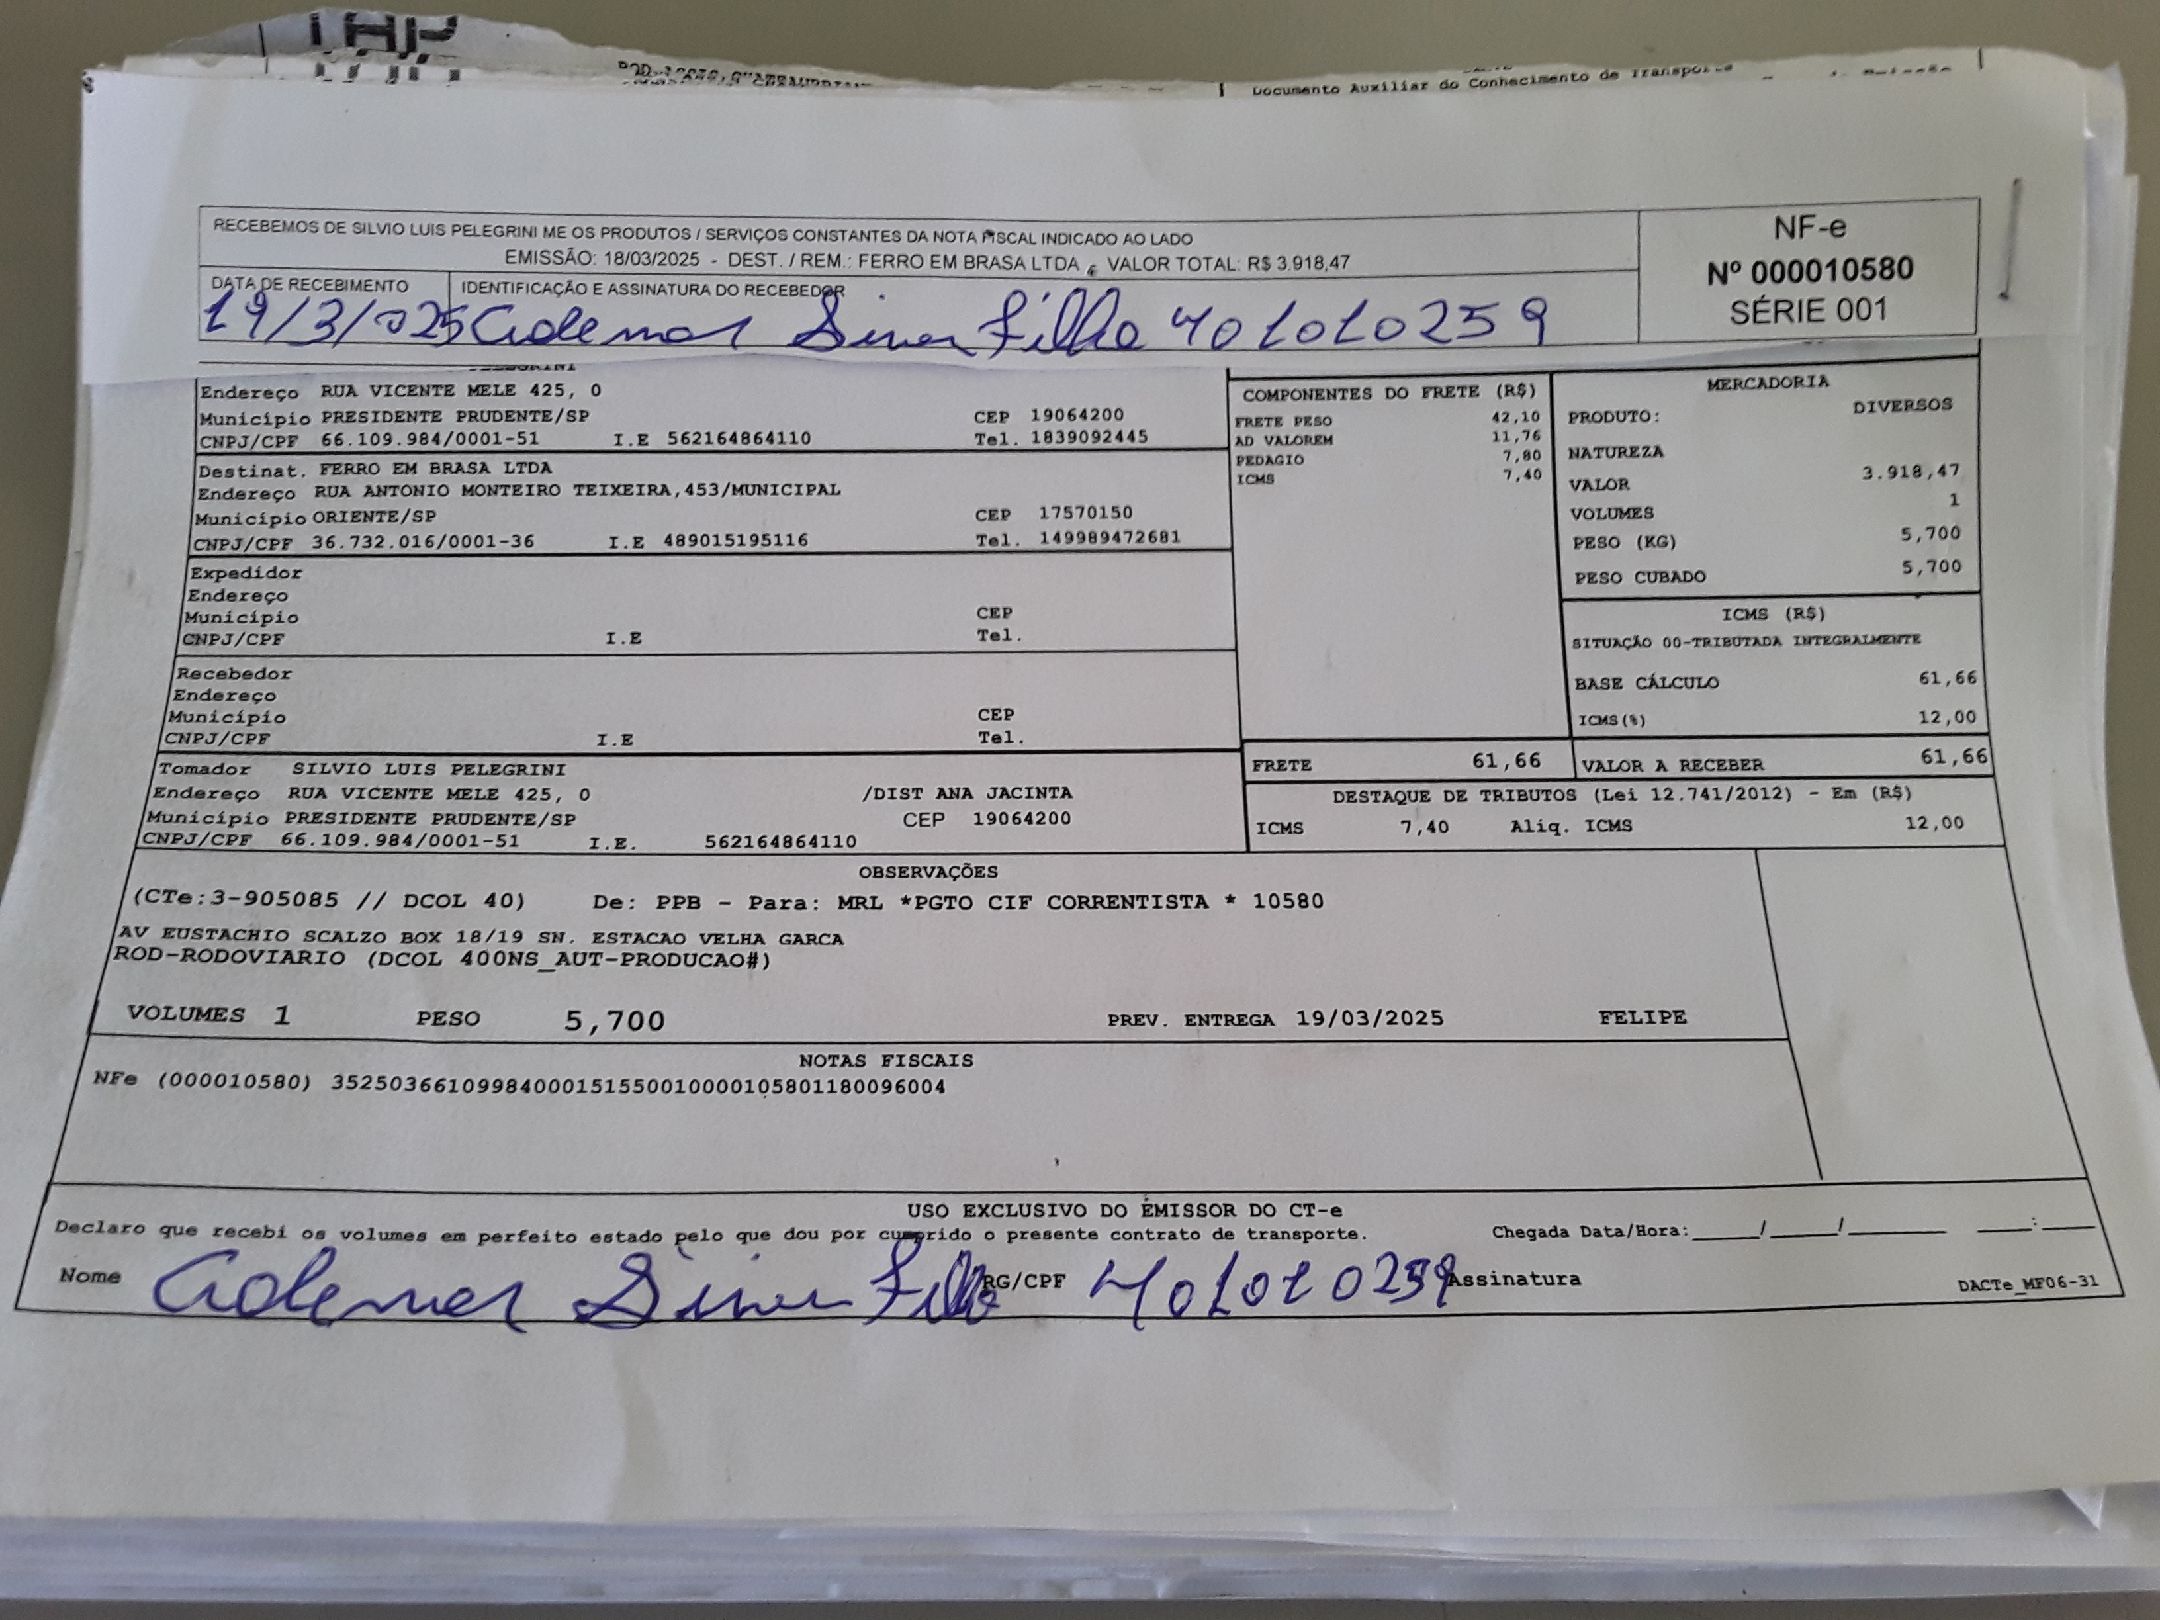 Documento Auxiliar do Conhecimento de Transporte
RECEBEMOS DE SILVIO LUIS PELEGRINI ME OS PRODUTOS / SERVIÇOS CONSTANTES DA NOTA FISCAL INDICADO AO LADO
EMISSÃO: 18/03/2025 - DEST. / REM.: FERRO EM BRASA LTDA - VALOR TOTAL: R$ 3.918,47
NF-e
Nº 000010580
SÉRIE 001
DATA DE RECEBIMENTO IDENTIFICAÇÃO E ASSINATURA DO RECEBEDOR
19/3/2025 Ademar Filho 401010259
Endereço RUA VICENTE MELE 425, 0
Município PRESIDENTE PRUDENTE/SP CEP 19064200
CNPJ/CPF 66.109.984/0001-51 I.E 562164864110 Tel. 1839092445
Destinat. FERRO EM BRASA LTDA
Endereço RUA ANTONIO MONTEIRO TEIXEIRA,453/MUNICIPAL
Município ORIENTE/SP CEP 17570150
CNPJ/CPF 36.732.016/0001-36 I.E 489015195116 Tel. 149989472681
Expedidor
Endereço
Município CEP
CNPJ/CPF I.E Tel.
Recebedor
Endereço
Município CEP
CNPJ/CPF I.E Tel.
Tomador SILVIO LUIS PELEGRINI
Endereço RUA VICENTE MELE 425, 0 /DIST ANA JACINTA
Município PRESIDENTE PRUDENTE/SP CEP 19064200
CNPJ/CPF 66.109.984/0001-51 I.E. 562164864110
COMPONENTES DO FRETE (R$)
FRETE PESO 42,10
AD VALOREM 11,76
PEDAGIO 7,80
ICMS 7,40
MERCADORIA
PRODUTO: DIVERSOS
NATUREZA
VALOR 3.918,47
VOLUMES 1
PESO (KG) 5,700
PESO CUBADO 5,700
ICMS (R$)
SITUAÇÃO 00-TRIBUTADA INTEGRALMENTE
BASE CÁLCULO 61,66
ICMS(%) 12,00
FRETE 61,66 VALOR A RECEBER 61,66
DESTAQUE DE TRIBUTOS (Lei 12.741/2012) - Em (R$)
ICMS 7,40 Aliq. ICMS 12,00
OBSERVAÇÕES
(CTe:3-905085 // DCOL 40) De: PPB - Para: MRL *PGTO CIF CORRENTISTA * 10580
AV EUSTACHIO SCALZO BOX 18/19 SN. ESTACAO VELHA GARCA
ROD-RODOVIARIO (DCOL 400NS_AUT-PRODUCAO#)
VOLUMES 1 PESO 5,700 PREV. ENTREGA 19/03/2025 FELIPE
NOTAS FISCAIS
NFe (000010580) 35250366109984000151550010000105801180096004
USO EXCLUSIVO DO EMISSOR DO CT-e
Declaro que recebi os volumes em perfeito estado pelo que dou por cumprido o presente contrato de transporte. Chegada Data/Hora:_____/_____/_______ ____:____
Nome Ademar Filho RG/CPF 401010259 Assinatura DACTe_MF06-31